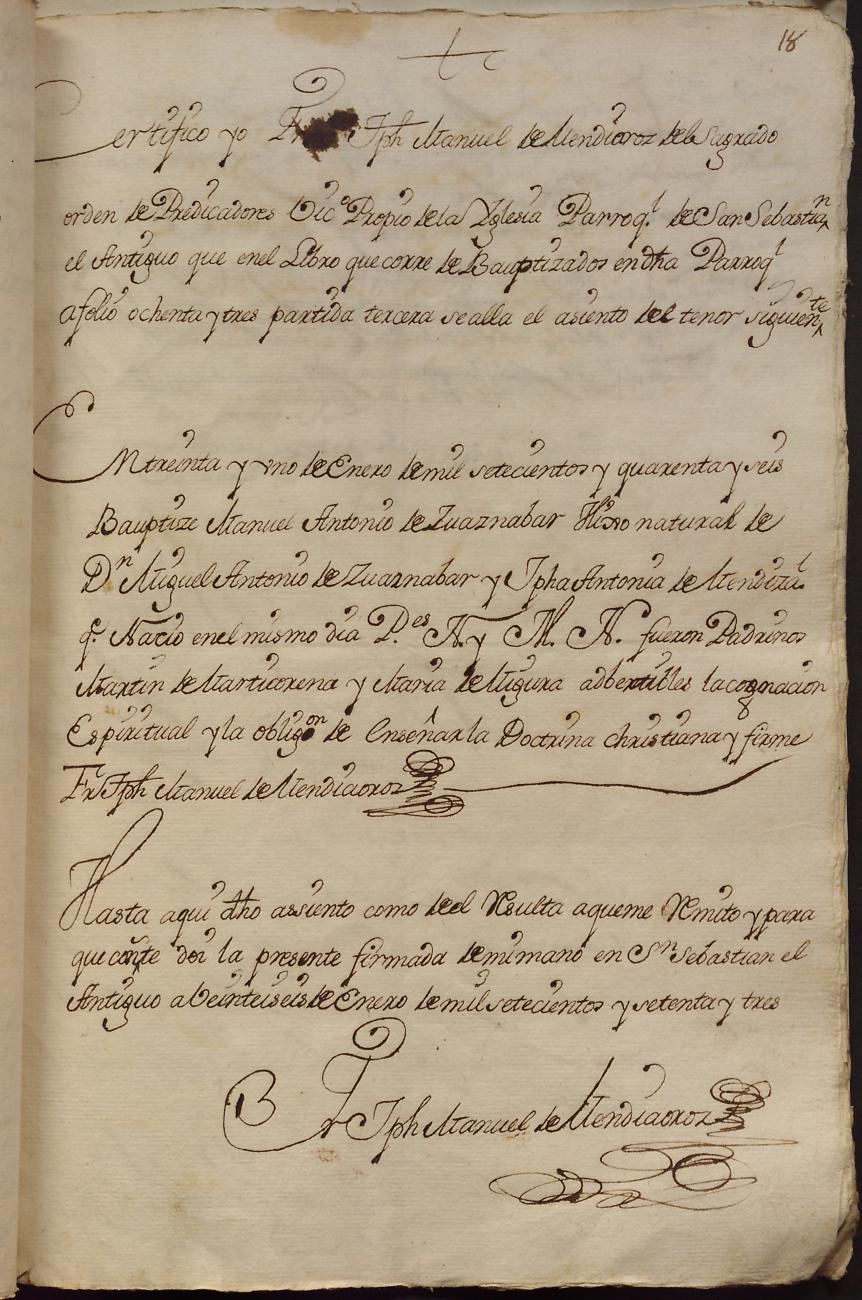 18
Certifico yo Fr Jph Manuel de Mendiaroz del Sagrado
orden de Predicadores Vic.º Propio de la Yglesia Parroq.l de San Sebastian
el Antiguo que en el Libro que corre de Bauptizados en dha Parroq.l
a folio ochenta y tres partida tercera se alla el asiento del tenor siguiente
En treinta y uno de Enero de mil setecientos y quarenta y seis
Bauptize Manuel Antonio de Zuaznabar Hixo natural de
D.n Miguel Antonio de Zuaznabar y Jpha Antonia de
q.e Nacio en el mismo dia P.es N. y M. N. fueron Padrinos
Martin de Martiarena y Maria de Migura adbertibles la cognacion
Espiritual y la oblig.on de Enseñar la Doctrina christiana y firme
Fr Jph Manuel de Mendiaoroz
Hasta aqui dho assiento como de el Resulta aqueme Remito y para
que conste doi la presente firmada de mi mano en S.n Sebastian el
Antiguo a Veinteiseis de Enero de mil setecientos y setenta y tres
Fr Jph Manuel de Mendiaoroz